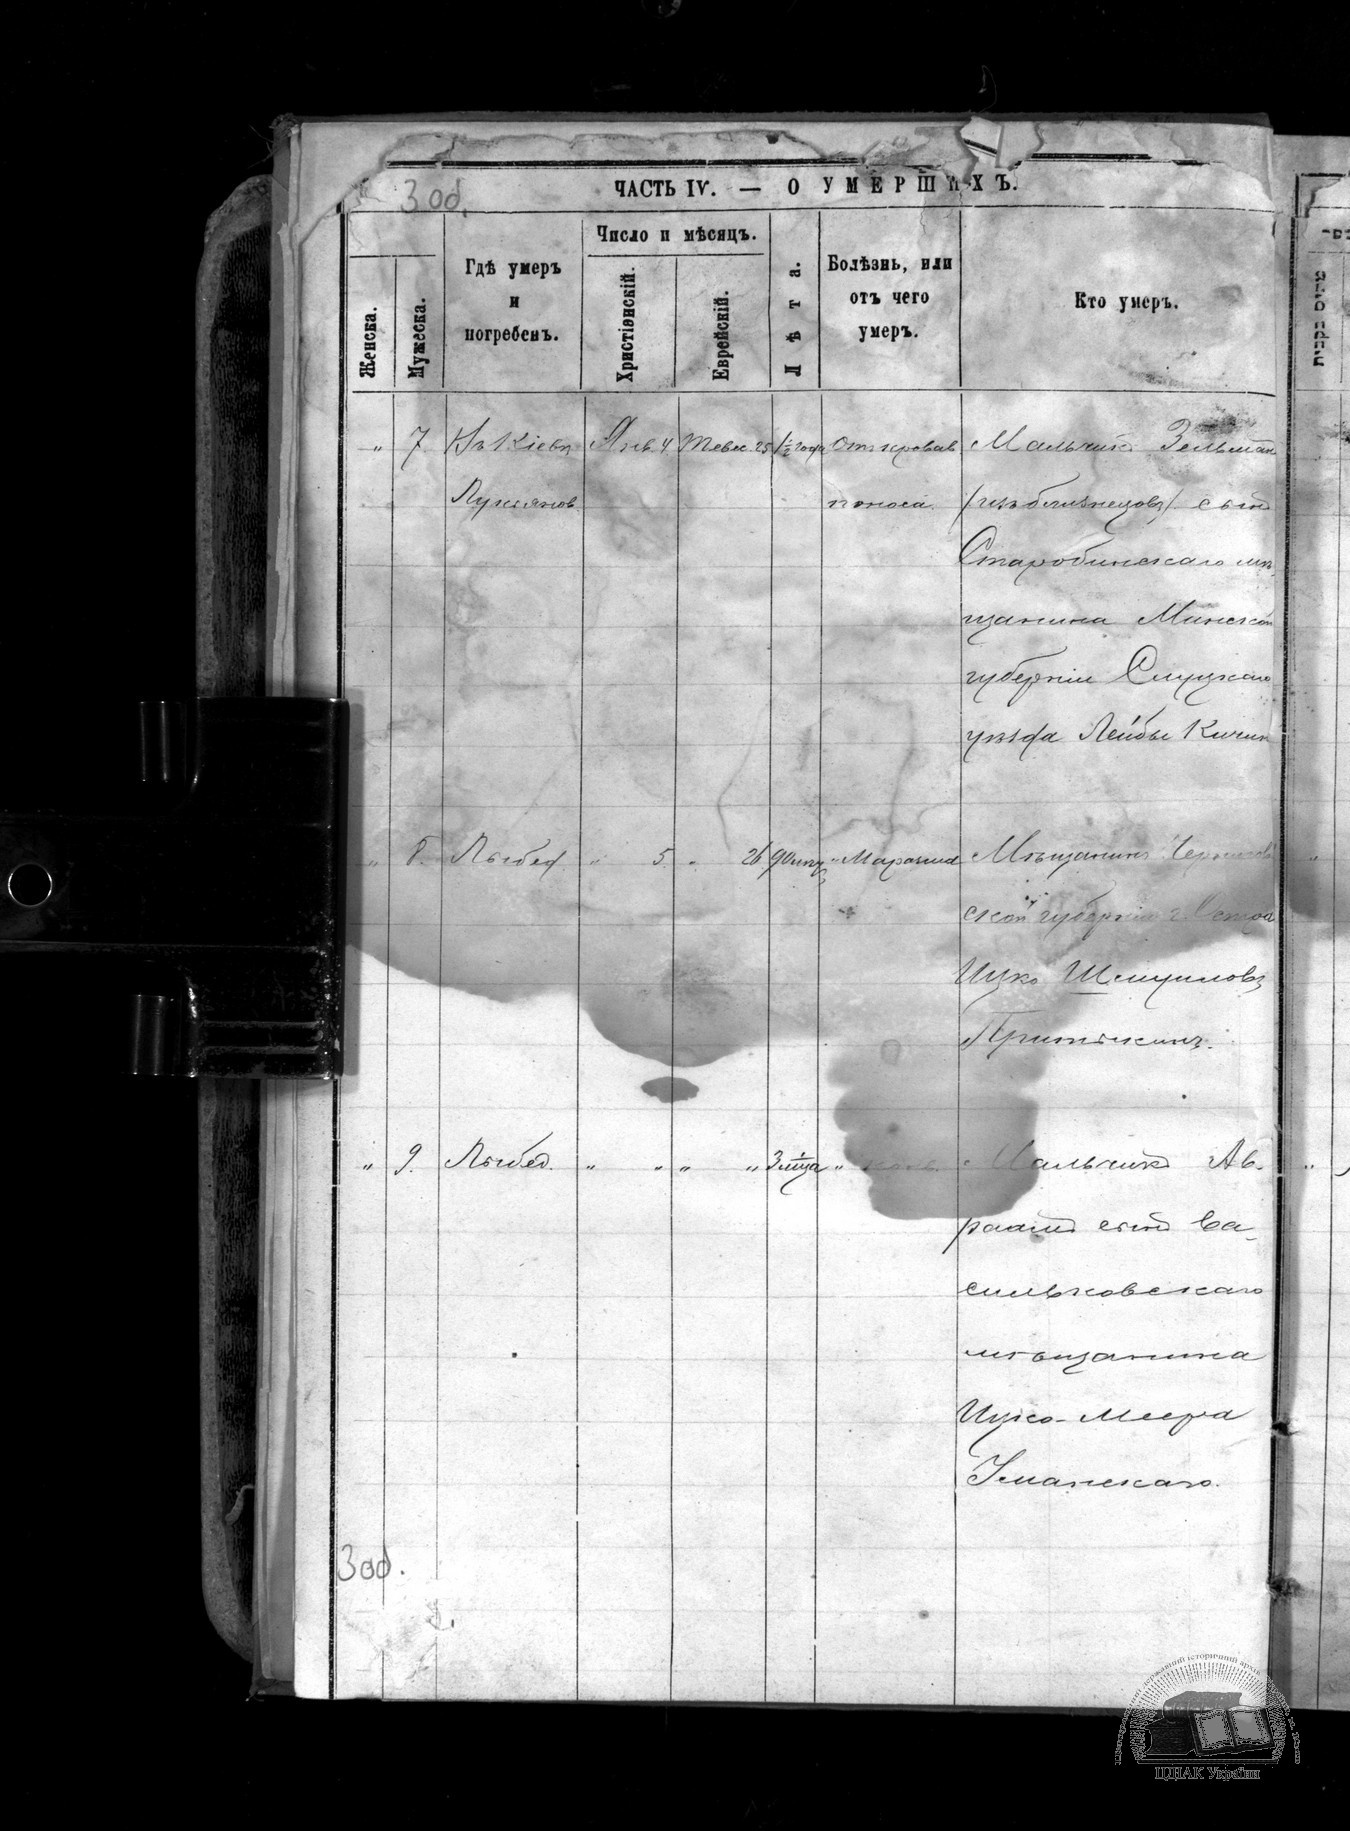 ЧАСТЬ IV. — О УМЕРШИХЪ.
3 об.
Женска.
Мужеска.
Гдѣ умеръ
и
погребенъ.
Число и мѣсяцъ.
Христіянскій.
Еврейскій.
Лѣта.
Болѣзнь, или
отъ чего
умеръ.
Кто умеръ.
„ 7. Въ Кіевѣ Янв. 4 Тевес. 25 1½ года Отъ кровав. Мальчикъ Зельман
Лукянов. поноса. (изъ близнецовъ) сынъ
Старобинскаго мѣ-
щанина Минской
губерніи Слуцкаго
уѣзда Лейбы Кичик
„ 8. Лыбед „ 5. „ 26 90 „ Маразма Мѣщанинъ Чернигов
ской губерніи г. Остра
Ицко Шмуиловъ
„ 9. Лыбед. „ „ „ „ 3 мѣсца „ Мальчикъ Ав-
раамъ сынъ Ва-
сильковскаго
мѣщанина
Ицко-Меера
Уманскаго.
3 об.
ЦДІАК України